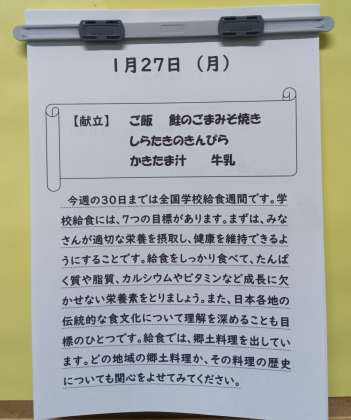 1月27日（月）
【献立】　ご飯　鮭のごまみそ焼き
しらたきのきんぴら
かきたま汁　　牛乳
今週の30日までは全国学校給食週間です。学
校給食には、7つの目標があります。まずは、みな
さんが適切な栄養を摂取し、健康を維持できるよ
うにすることです。給食をしっかり食べて、たんぱ
く質や脂質、カルシウムやビタミンなど成長に欠
かせない栄養素をとりましょう。また、日本各地の
伝統的な食文化について理解を深めることも目
標のひとつです。給食では、郷土料理を出してい
ます。どの地域の郷土料理か、その料理の歴史
についても関心をよせてみてください。